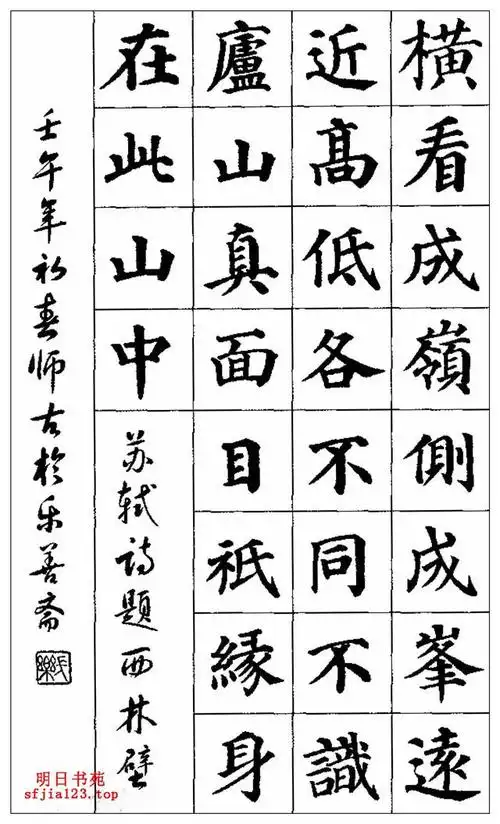 橫看成嶺側成峯遠
近高低各不同不識
廬山真面目祇緣身
在此山中
苏轼诗题西林壁
壬午年初春师古於乐善斋
明日书苑
sfjia123.top